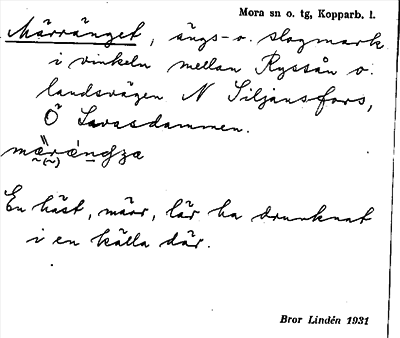 Mora sn o. tg, Kopparb. l.
Märränget, ängs- o. slogmark
i vinkeln mellan Ryssån o.
landsvägen N Siljansfors,
Ö Savasdammen.
En häst, märr, lär ha drunknat
i en källa där.
Bror Lindén 1931